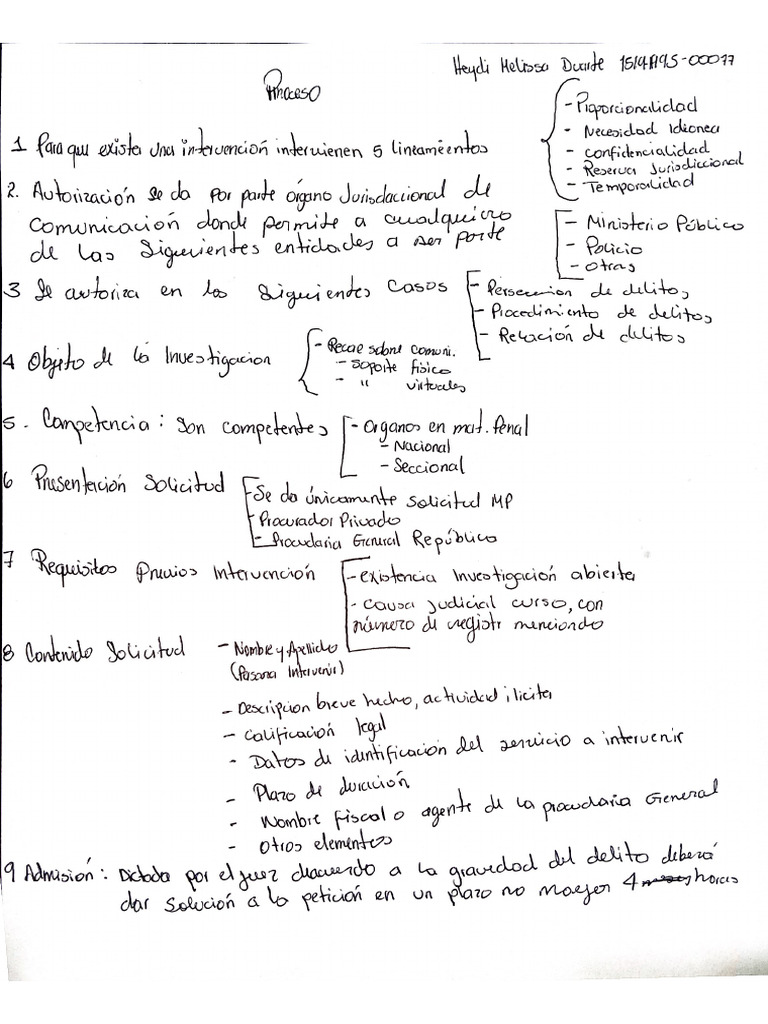 Heydi Melissa Duarte 1519A195-00077
Proceso
1 Para que exista una intervención intervienen 5 lineamientos
- Proporcionalidad
- Necesidad Idionea
- Confidencialidad
- Reserva Jurisdiccional
- Temporalidad
2. Autorización se da por parte órgano Jurisdaccional de
comunicación donde permite a cualquiera
de las siguientes entidades a ser parte
- Ministerio Público
- Policia
- otras
3 Se autoriza en los siguientes casos
- Persecucion de delitos
- Procedimiento de delitos
- Relación de delitos
4 Objeto de la Investigacion
- Recae sobre comuni.
- Soporte físico
- " virtuales
5. Competencia: son competentes
- Organos en mat. Penal
- Nacional
- Seccional
6 Presentación Solicitud
- Se da únicamente solicitud MP
- Procurador Privado
- Procuduria General República
7 Requisitos previos Intervención
- existencia Investigación abierta
- causa judicial curso, con
número de registr menciondo
8 Contenido Solicitud
- Nombre y Apellido
(Persona Intervenir)
- Descripcion breve hecho, actividad ilicita
- Calificación legal
- Datos de identificación del servicio a intervenir
- Plazo de duración
- Nombre fiscal o agente de la procuduria General
- Otros elementos
9 Admisión: Dictada por el juez deacuerdo a la gravedad del delito deberá
dar solución a la petición en un plazo no mayor 4 horas